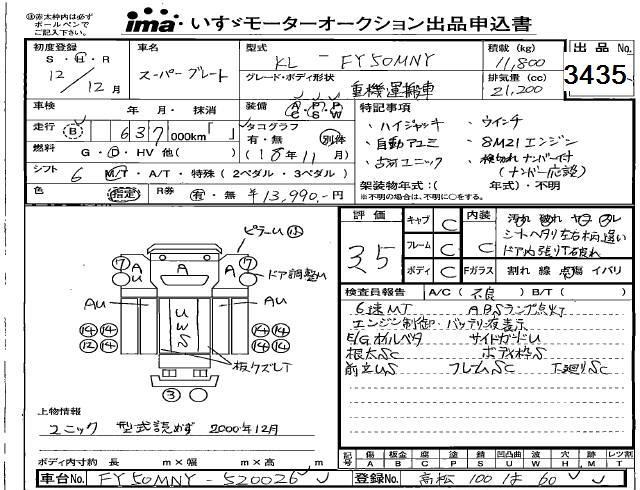 ㊟赤太枠内は必ず
ボールペンで
ご記入下さい。
ima いすゞモーターオークション出品申込書
初度登録
S・H・R
12/12月
車名
スーパーグレート
型式
KL - FY50MNY
積載(kg)
11,800
出品No.
3435
グレード・ボディ形状
重機運搬車
排気量(cc)
21,200
車検 年 月・抹消
装備 A/C P/S P/W
特記事項
走行 B 637 000km「 」
タコグラフ
有・無 別体
(10年11月)
・ハイジャッキ ・ウインチ
・自動アユミ ・8M21エンジン
・古河ユニック ・検切れナンバー付
(ナンバー応談)
燃料 G・D・HV 他( )
シフト 6 M/T・A/T・特殊(2ペダル・3ペダル)
架装物年式:( 年式)・不明
※不明の場合は、不明に○をする。
色 指定 R券 有・無 ¥13,990.-円
評価
35
キャブ C
フレーム C
ボディ C
内装 C
Fガラス
汚れ 破れ ヤコゲ スレ
シートヘタリ左右柄違い
ドア内張りT破れ
割れ 線 点傷 イバリ
検査員報告 A/C(不良) B/T( )
6速MT ABSランプ点灯
エンジン制御・バッテリー液表示
E/Gオイルベタ サイドガードU
根太SC ボディ枠S
前立US フレームSC 下廻りSC
ピラーU小
⑦ A A A ⑦
AU
ドア調整U
AU AU
UWS
⑭⑭ ⑭⑭
⑫⑭ ⑭⑭
板クズレT
③
上物情報
ユニック 型式読めず 2000年12月
ボディ内寸約 長 m×幅 m×高 m
記号 傷A 板金B 腐C 塗P 錆S 凹凸曲U 波W 穴H 跡M レツ割T
車台No. FY50MNY-520026
登録No. 高松 100 は 60